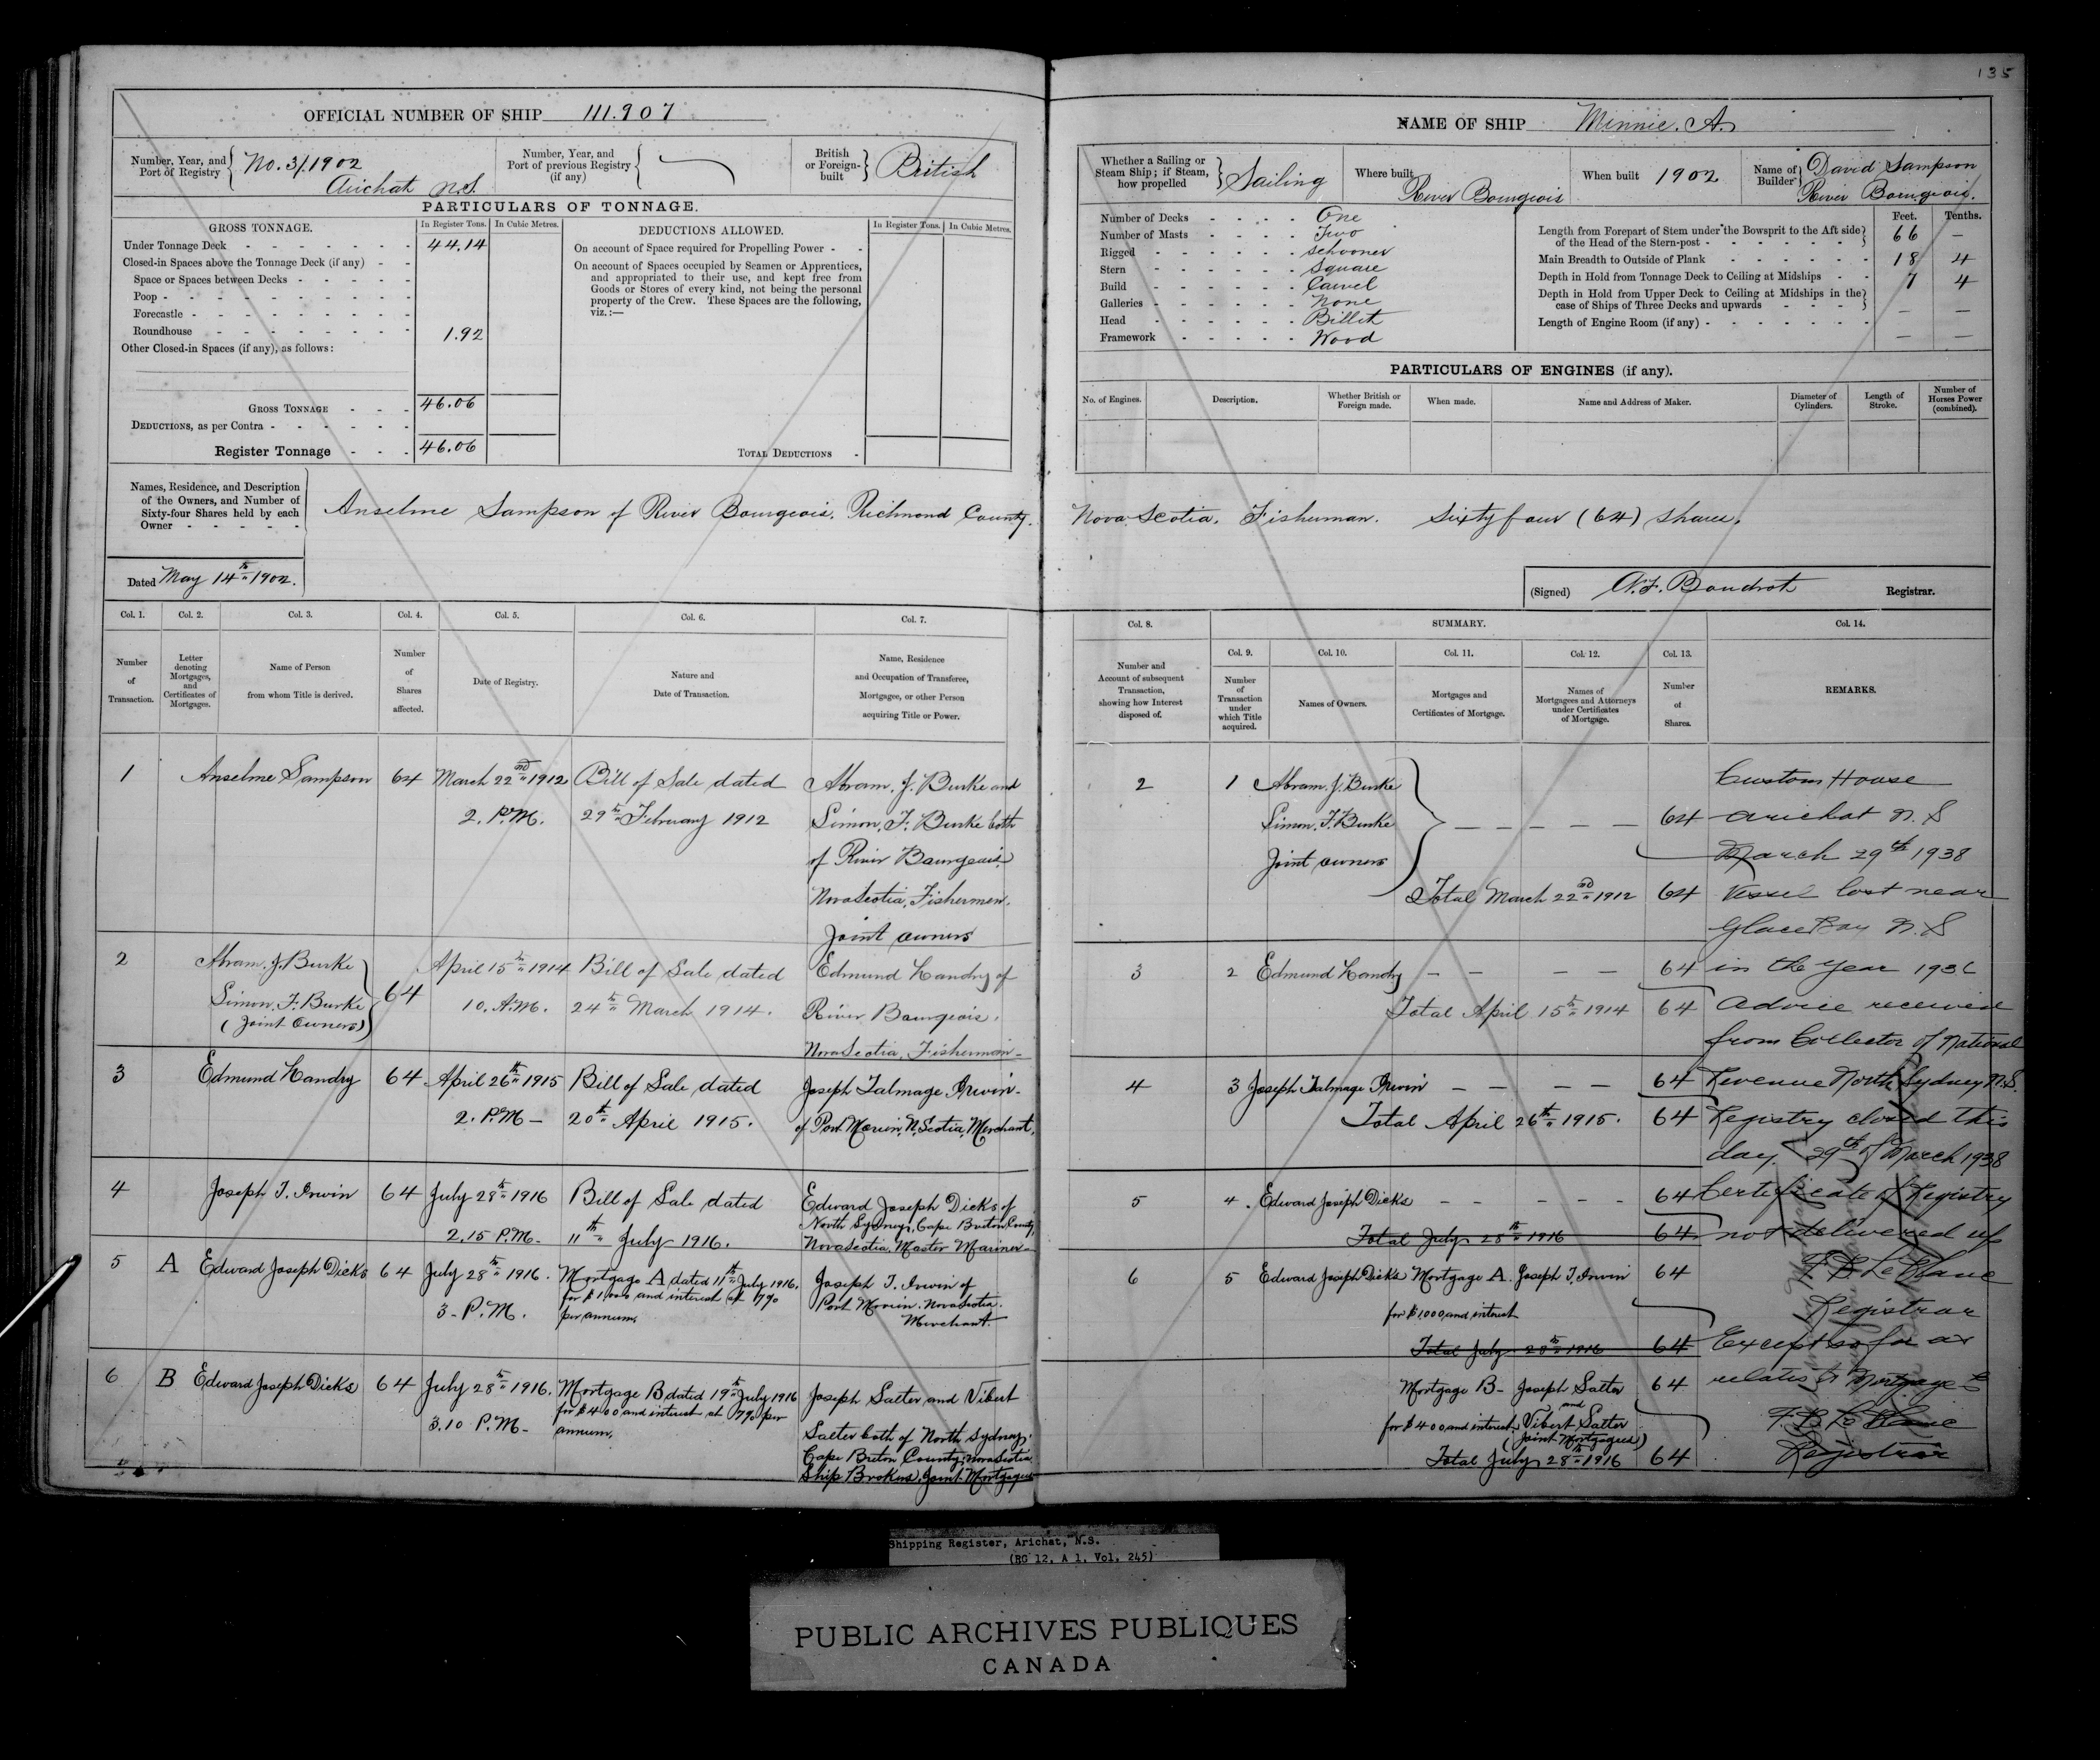 135
OFFICIAL NUMBER OF SHIP 111.907
Number, Year, and Port of Registry No. 3/1902 Arichat N.S.
Number, Year, and Port of previous Registry (if any)
British or Foreign-built British
PARTICULARS OF TONNAGE.
GROSS TONNAGE. In Register Tons. In Cubic Metres.
Under Tonnage Deck 44.14
Closed-in Spaces above the Tonnage Deck (if any)
Space or Spaces between Decks
Poop
Forecastle
Roundhouse 1.92
Other Closed-in Spaces (if any), as follows:
GROSS TONNAGE 46.06
DEDUCTIONS, as per Contra
Register Tonnage 46.06
DEDUCTIONS ALLOWED. In Register Tons. In Cubic Metres.
On account of Space required for Propelling Power
On account of Spaces occupied by Seamen or Apprentices,
and appropriated to their use, and kept free from
Goods or Stores of every kind, not being the personal
property of the Crew. These Spaces are the following,
viz.:—
TOTAL DEDUCTIONS
NAME OF SHIP Minnie. A.
Whether a Sailing or Steam Ship; if Steam, how propelled Sailing
Where built River Bourgeois
When built 1902
Name of Builder David Sampson River Bourgeois.
Number of Decks One
Number of Masts Two
Rigged Schooner
Stern Square
Build Carvel
Galleries None
Head Billet
Framework Wood
Feet. Tenths.
Length from Forepart of Stem under the Bowsprit to the Aft side
of the Head of the Stern-post 66 —
Main Breadth to Outside of Plank 18 4
Depth in Hold from Tonnage Deck to Ceiling at Midships 7 4
Depth in Hold from Upper Deck to Ceiling at Midships in the
case of Ships of Three Decks and upwards — —
Length of Engine Room (if any) — —
PARTICULARS OF ENGINES (if any).
No. of Engines. Description. Whether British or Foreign made. When made. Name and Address of Maker. Diameter of Cylinders. Length of Stroke. Number of Horses Power (combined).
Names, Residence, and Description
of the Owners, and Number of
Sixty-four Shares held by each
Owner
Anselme Sampson of River Bourgeois. Richmond County. Nova Scotia. Fisherman. Sixty four (64) shares.
Dated May 14th 1902.
(Signed) A.F. Boudrot Registrar.
Col. 1. Col. 2. Col. 3. Col. 4. Col. 5. Col. 6. Col. 7.
Number of Transaction.
Letter denoting Mortgages, and Certificates of Mortgages.
Name of Person from whom Title is derived.
Number of Shares affected.
Date of Registry.
Nature and Date of Transaction.
Name, Residence and Occupation of Transferee, Mortgagee, or other Person acquiring Title or Power.
1 Anselme Sampson 64 March 22nd 1912 Bill of Sale dated Abram. J. Burke and
2. P.M. 29th February 1912 Simon. F. Burke both
of River Bourgeois
Nova Scotia, Fishermen.
Joint owners
2 Abram. J. Burke April 15th 1914 Bill of Sale dated Edmund Landry of
Simon. F. Burke 64 10. A.M. 24th March 1914. River Bourgeois.
(Joint Owners) Nova Scotia. Fisherman
3 Edmund Landry 64 April 26th 1915 Bill of Sale dated Joseph Talmage Irwin
2. P.M— 20th April 1915. of Port Morien, N. Scotia, Merchant.
4 Joseph T. Irwin 64 July 28th 1916 Bill of Sale dated Edward Joseph Dicks of
2.15 P.M— 11th July 1916. North Sydney, Cape Breton County,
Nova Scotia. Master Mariner
5 A Edward Joseph Dicks 64 July 28th 1916. Mortgage A dated 11th July 1916. Joseph T. Irwin of
3— P.M. for $1,000 and interest at 7% Port Morien. Nova Scotia.
per annum. Merchant.
6 B Edward Joseph Dicks 64 July 28th 1916. Mortgage B dated 19th July 1916 Joseph Salter and Vibert
3.10 P.M— for $400 and interest at 7% per Salter both of North Sydney.
annum. Cape Breton County, Nova Scotia
Ship Brokers, Joint Mortgagees
Col. 8. SUMMARY. Col. 14.
Col. 9. Col. 10. Col. 11. Col. 12. Col. 13.
Number and Account of subsequent Transaction, showing how Interest disposed of.
Number of Transaction under which Title acquired.
Names of Owners.
Mortgages and Certificates of Mortgage.
Names of Mortgagees and Attorneys under Certificates of Mortgage.
Number of Shares.
REMARKS.
2 1 Abram. J. Burke
Simon. F. Burke 64
Joint owners
Total March 22nd 1912 64
3 2 Edmund Landry 64
Total April 15th 1914 64
4 3 Joseph Talmage Irwin 64
Total April 26th 1915. 64
5 4. Edward Joseph Dicks 64
Total July 28th 1916 64
6 5 Edward Joseph Dicks Mortgage A. Joseph T. Irwin 64
for $1,000 and interest
Total July 28th 1916 64
Mortgage B— Joseph Salter 64
and
for $400 and interest. Vibert Salter
(Joint Mortgagees)
Total July 28th 1916 64
Custom House
Arichat N.S
March 29th 1938
Vessel lost near
Glace Bay N.S
in the year
Advice received
from Collector of National
Revenue North Sydney N.S.
Registry closed this
day. 29th of March 1938
Certificate of Registry
not delivered up
F B LeBlanc
Registrar
Except so far as
relates to Mortgages
F. B. LeBlanc
Registrar
Shipping Register, Arichat, N.S.
(RG 12, A 1, Vol. 245)
PUBLIC ARCHIVES PUBLIQUES
CANADA